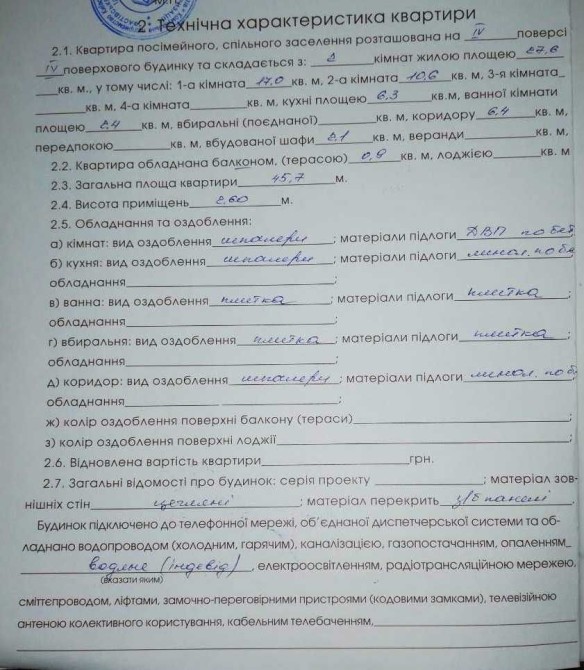 2. Технічна характеристика квартири
2.1. Квартира посімейного, спільного заселення розташована на IV поверсі
IV поверхового будинку та складається з: 2 кімнат жилою площею 27,6
кв. м., у тому числі: 1-а кімната 17,0 кв. м, 2-а кімната 10,6 кв. м, 3-я кімната
кв. м, 4-а кімната кв. м, кухні площею 6,3 кв.м, ванної кімнати
площею 2,4 кв. м, вбиральні (поєднаної) кв. м, коридору 6,4 кв. м,
передпокою кв. м, вбудованої шафи 2,1 кв. м, веранди кв. м,
2.2. Квартира обладнана балконом, (терасою) 0,9 кв. м, лоджією кв. м
2.3. Загальна площа квартири 45,7 м.
2.4. Висота приміщень 2,60 м.
2.5. Обладнання та оздоблення:
а) кімнат: вид оздоблення шпалери; матеріали підлоги ДВП по бет
б) кухня: вид оздоблення шпалери; матеріали підлоги лінол. по б
обладнання ;
в) ванна: вид оздоблення плитка; матеріали підлоги плитка ;
обладнання ;
г) вбиральня: вид оздоблення плитка; матеріали підлоги плитка ;
обладнання ;
д) коридор: вид оздоблення шпалери; матеріали підлоги лінол. по б
обладнання ;
ж) колір оздоблення поверхні балкону (тераси) ;
з) колір оздоблення поверхні лоджії ;
2.6. Відновлена вартість квартири грн.
2.7. Загальні відомості про будинок: серія проекту ; матеріал зов-
нішніх стін цегляні ; матеріал перекрить з/б панелі .
Будинок підключено до телефонної мережі, об'єднаної диспетчерської системи та об-
ладнано водопроводом (холодним, гарячим), каналізацією, газопостачанням, опаленням
водяне (індевід) , електроосвітленням, радіотрансляційною мережею,
(вказати яким)
сміттєпроводом, ліфтами, замочно-переговірними пристроями (кодовими замками), телевізійною
антеною колективного користування, кабельним телебаченням,